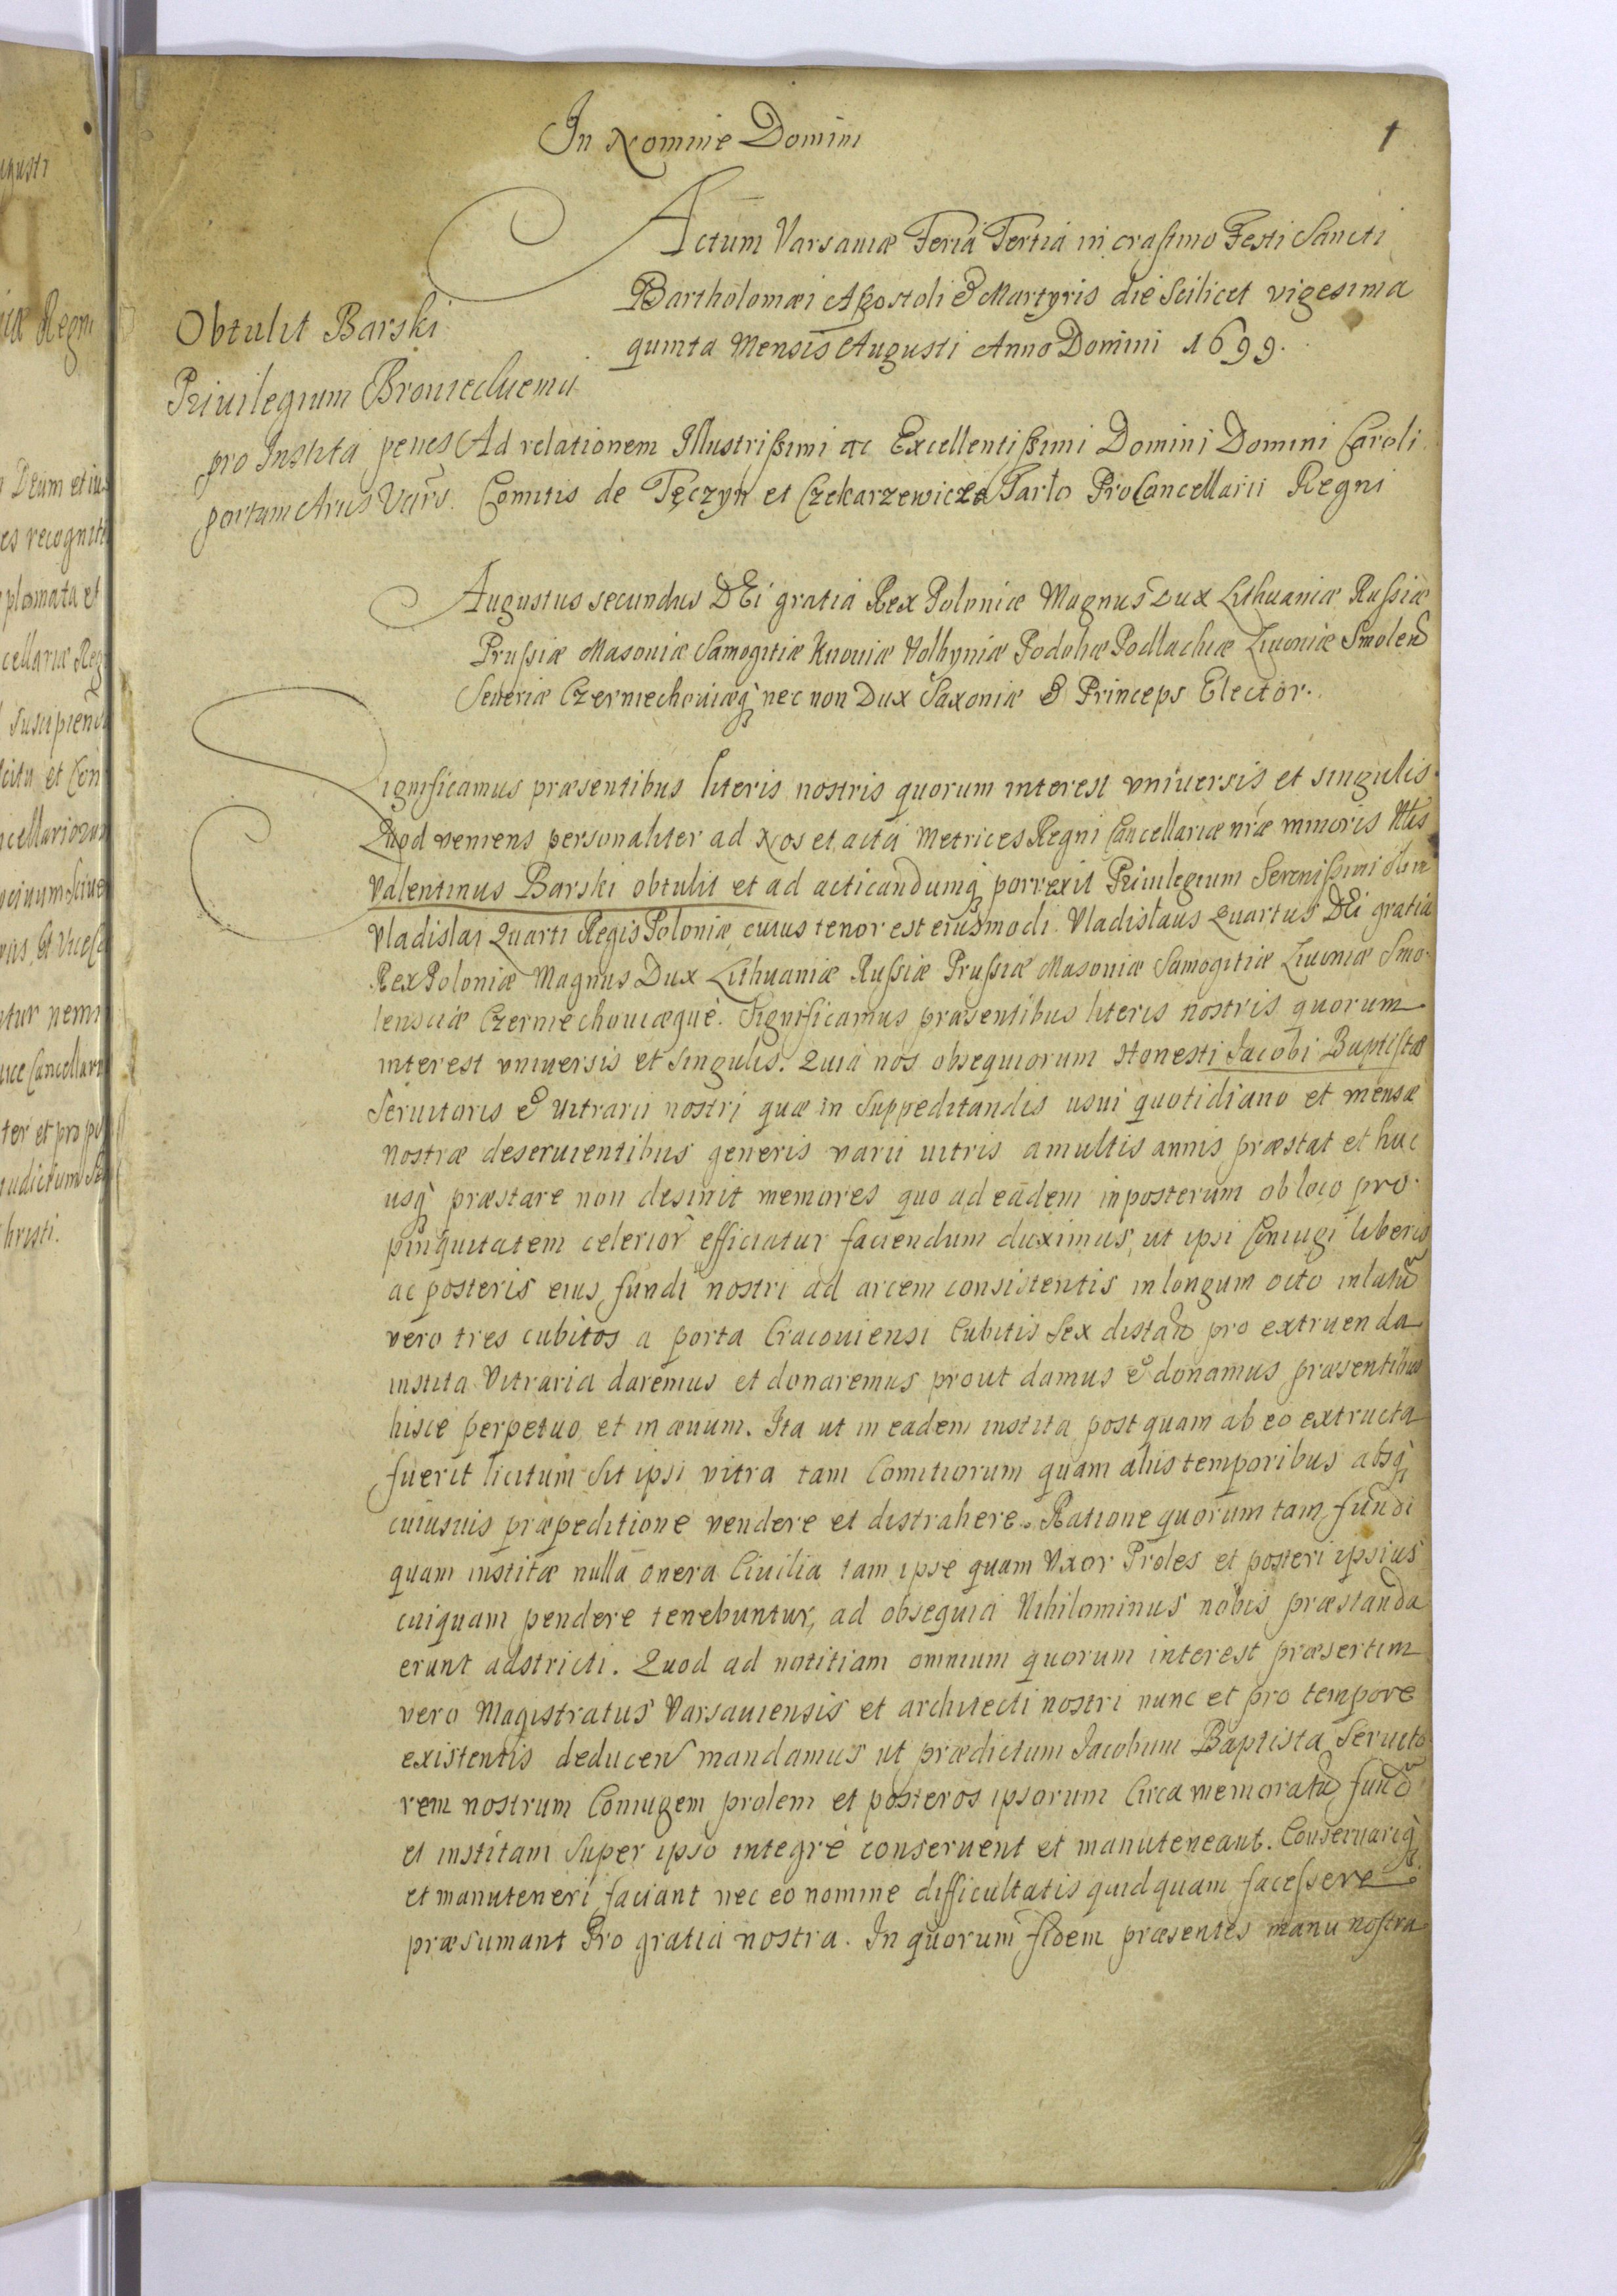 In Nomine Domini
1
Actum Varsaviæ Feria Tertia in crastino Festi Sancti
Bartholomæi Apostoli & Martyris die Scilicet vigesima
quinta Mensis Augusti Anno Domini 1699.
Obtulit Barski
Privilegium
pro Instita penes
portam Arcis Vars.
Ad relationem Illustrissimi ac Excellentissimi Domini Domini Caroli
Comitis de Tęczyn et Czekarzewice Tarło ProCancellarii Regni
Augustus secundus DEi gratia Rex Poloniæ Magnus Dux Lithuaniæ Russiæ
Prussiæ Masoviæ Samogitiæ Kijoviæ Volhyniæ Podoliæ Podlachiæ Livoniæ Smolen
Severiæ Czerniechoviæq nec non Dux Saxoniæ & Princeps Elector.
Significamus præsentibus literis nostris quorum interest universis et singulis.
Quod veniens personaliter ad Nos et acta Metrices Regni Cancellariæ nræ minoris
Valentinus Barski obtulit et ad acticandumq porrexit Privilegium Serenissimi olim
Vladislai Quarti Regis Poloniæ cuius tenor est eiusmodi. Vladislaus Quartus DEi gratia
Rex Poloniæ Magnus Dux Lithuaniæ Russiæ Prussiæ Masoviæ Samogitiæ Livoniæ Smo-
lensciæ Czerniechoviæque. Significamus præsentibus literis nostris quorum
interest universis et singulis. Quia nos obsequiorum Honesti Jacobi Baptistæ
Servitoris & vitrarii nostri quæ in suppeditandis usui quotidiano et mensæ
nostræ deservientibus generis varii vitris a multis annis præstat et huc
usq præstare non desinit memores quo ad eadem in posterum ob loco pro-
pinquitatem celerior efficiatur faciendum duximus, ut ipsi Coniugi liberis
ac posteris eius, fundi nostri ad arcem consistentis in longum octo in latũ
vero tres cubitos a porta Cracoviensi Cubitis Sex distan pro extruenda
instita Vitraria daremus et donaremus prout damus & donamus præsentibus
hisce perpetuo et in ævum. Ita ut in eadem instita post quam ab eo extructa
fuerit licitum sit ipsi vitra tam Comitiorum quam aliis temporibus absq
cuiusvis præpeditione vendere et distrahere. Ratione quorum tam fundi
quam institæ nulla onera Civilia tam ipse quam Uxor Proles et posteri ipsius
cuiquam pendere tenebuntur, ad obsequia Nihilominus nobis præstanda
erunt adstricti. Quod ad notitiam omnium quorum interest præsertim
vero Magistratus Varsaviensis et architecti nostri nunc et pro tempore
existentis deducen mandamus ut prædictum Jacobum Baptista Servito
rem nostrum Coniugem prolem et posteros ipsorum Circa memoratũ fund
et institam super ipso integrè conservent et manuteneant. Conservariq
et manuteneri faciant nec eo nomine difficultatis quidquam facessere
præsumant Pro gratia nostra. In quorum fidem præsentes manu nostra